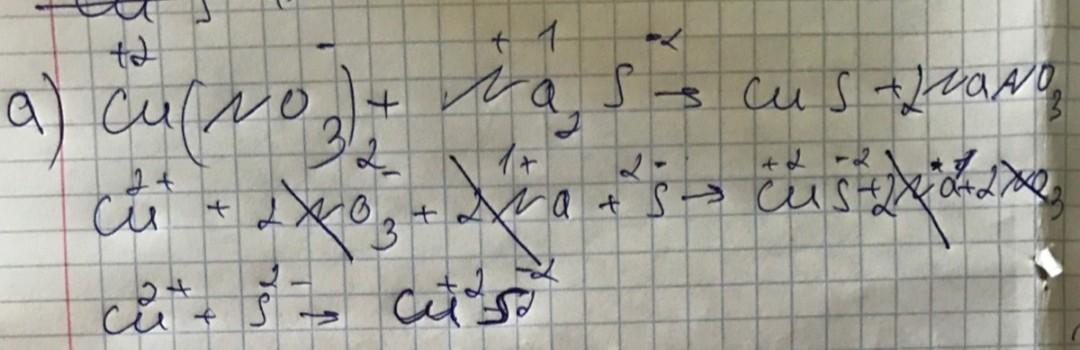 a) Cu⁺²(NO₃)₂⁻ + Na₂⁺¹S⁻² → CuS + 2NaNO₃
Cu²⁺ + 2NO₃⁻ + 2Na¹⁺ + S²⁻ → Cu⁺²S⁻² + 2Na⁺¹ + 2NO₃
Cu²⁺ + S²⁻ → Cu⁺²S⁻²